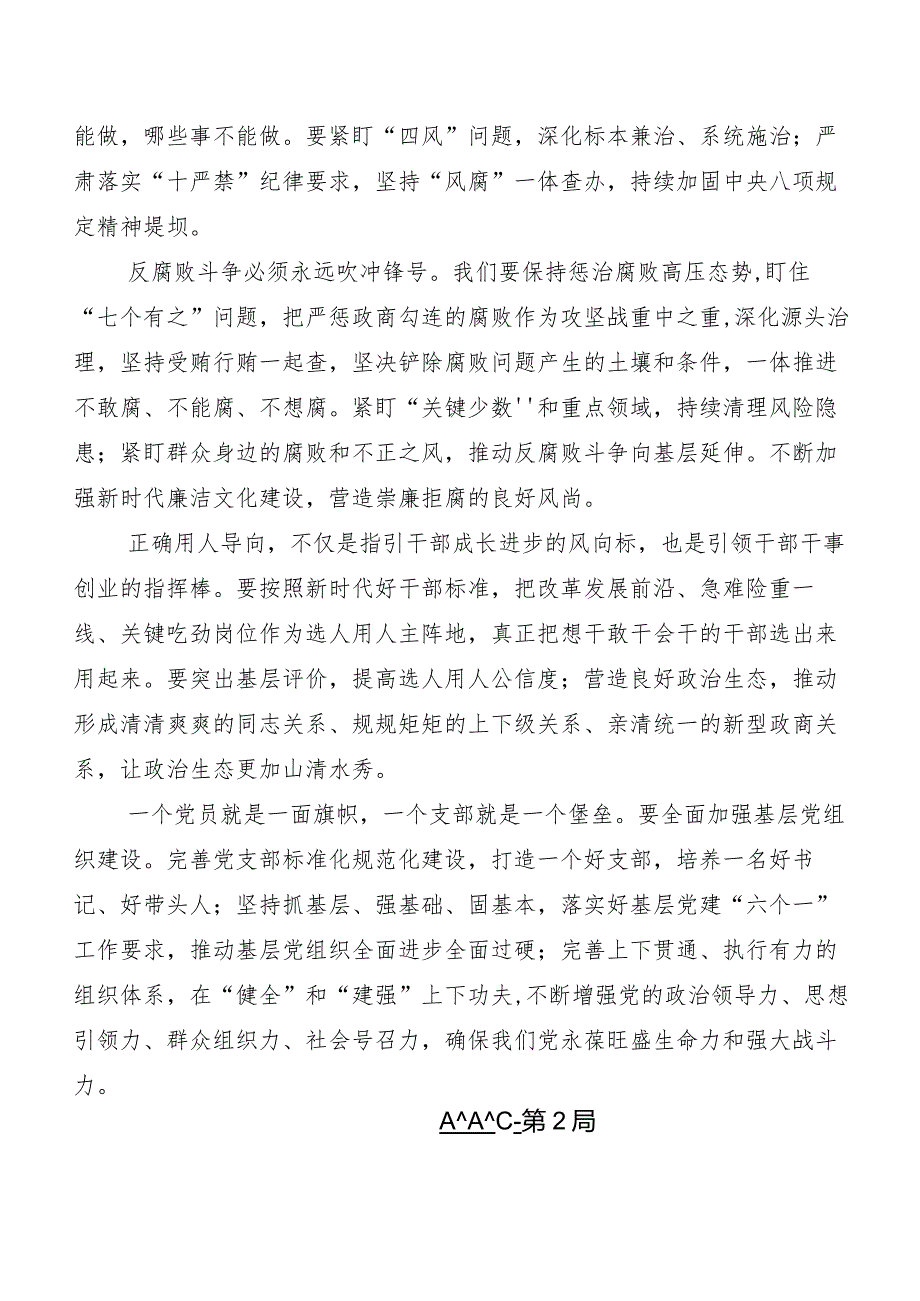 能做，哪些事不能做。要紧盯“四风”问题，深化标本兼治、系统施治；严
肃落实“十严禁”纪律要求，坚持“风腐”一体查办，持续加固中央八项规
定精神堤坝。
反腐败斗争必须永远吹冲锋号。我们要保持惩治腐败高压态势,盯住
“七个有之”问题，把严惩政商勾连的腐败作为攻坚战重中之重,深化源头治
理，坚持受贿行贿一起查，坚决铲除腐败问题产生的土壤和条件，一体推进
不敢腐、不能腐、不想腐。紧盯“关键少数''和重点领域，持续清理风险隐
患；紧盯群众身边的腐败和不正之风，推动反腐败斗争向基层延伸。不断加
强新时代廉洁文化建设，营造崇廉拒腐的良好风尚。
正确用人导向，不仅是指引干部成长进步的风向标，也是引领干部干事
创业的指挥棒。要按照新时代好干部标准，把改革发展前沿、急难险重一
线、关键吃劲岗位作为选人用人主阵地，真正把想干敢干会干的干部选出来
用起来。要突出基层评价，提高选人用人公信度；营造良好政治生态，推动
形成清清爽爽的同志关系、规规矩矩的上下级关系、亲清统一的新型政商关
系，让政治生态更加山清水秀。
一个党员就是一面旗帜，一个支部就是一个堡垒。要全面加强基层党组
织建设。完善党支部标准化规范化建设，打造一个好支部，培养一名好书
记、好带头人；坚持抓基层、强基础、固基本，落实好基层党建“六个一”
工作要求，推动基层党组织全面进步全面过硬；完善上下贯通、执行有力的
组织体系，在“健全”和“建强”上下功夫,不断增强党的政治领导力、思想
引领力、群众组织力、社会号召力，确保我们党永葆旺盛生命力和强大战斗
力。
A^A^C-第2局